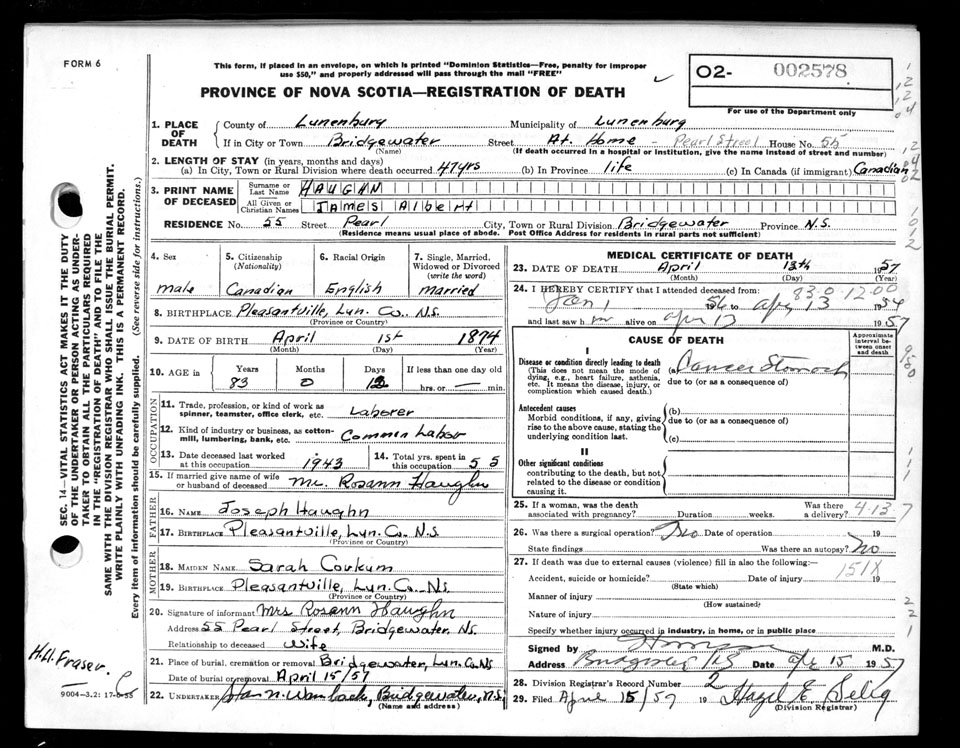 FORM 6
This form, if placed in an envelope, on which is printed "Dominion Statistics—Free, penalty for improper
use $50," and properly addressed will pass through the mail "FREE"
O2- 002578
For use of the Department only
PROVINCE OF NOVA SCOTIA—REGISTRATION OF DEATH
1. PLACE OF DEATH County of Lunenburg Municipality of Lunenburg
If in City or Town Bridgewater Street At Home - Pearl Street House No. 55
(Name) (If death occurred in a hospital or institution, give the name instead of street and number)
2. LENGTH OF STAY (in years, months and days)
(a) In City, Town or Rural Division where death occurred 47 yrs (b) In Province life (c) In Canada (if immigrant) Canadian
3. PRINT NAME OF DECEASED Surname or Last Name HAUGHN
All Given or Christian Names James Albert
RESIDENCE No. 55 Street Pearl City, Town or Rural Division Bridgewater Province N.S.
(Residence means usual place of abode. Post Office Address for residents in rural parts not sufficient)
4. Sex 5. Citizenship (Nationality) 6. Racial Origin 7. Single, Married, Widowed or Divorced (write the word)
male Canadian English married
8. BIRTHPLACE Pleasantville, Lun. Co., N.S.
(Province or Country)
9. DATE OF BIRTH April 1st 1874
(Month) (Day) (Year)
10. AGE in Years Months Days If less than one day old
83 0 12 hrs. or — min.
OCCUPATION
11. Trade, profession, or kind of work as spinner, teamster, office clerk, etc. Laborer
12. Kind of industry or business, as cotton-mill, lumbering, bank, etc. Common Labor
13. Date deceased last worked at this occupation 1943 14. Total yrs. spent in this occupation 55
15. If married give name of wife or husband of deceased Mrs. Rosann Haughn
FATHER
16. NAME Joseph Haughn
17. BIRTHPLACE Pleasantville, Lun. Co. N.S.
(Province or Country)
MOTHER
18. MAIDEN NAME Sarah Corkum
19. BIRTHPLACE Pleasantville, Lun. Co. N.S.
(Province or Country)
20. Signature of informant Mrs Rosann Haughn
Address 55 Pearl Street, Bridgewater, N.S.
Relationship to deceased Wife
21. Place of burial, cremation or removal Bridgewater, Lun. Co. N.S
Date of burial or removal April 15/57
22. UNDERTAKER Bridgewater, N.S.
(Name and address)
MEDICAL CERTIFICATE OF DEATH
23. DATE OF DEATH April 13th 1957
(Month) (Day) (Year)
83-0-12-00
24. I HEREBY CERTIFY that I attended deceased from:
Jan 1 1956 to Apr 13 19
and last saw h m alive on apr 13 1957
CAUSE OF DEATH
Approximate interval between onset and death
I
Disease or condition directly leading to death (a) Cancer Stomach
(This does not mean the mode of dying, e.g., heart failure, asthenia, etc. It means the disease, injury, or complication which caused death.)
due to (or as a consequence of)
Antecedent causes (b)
Morbid conditions, if any, giving rise to the above cause, stating the underlying condition last.
due to (or as a consequence of)
(c)
II
Other significant conditions
contributing to the death, but not related to the disease or condition causing it.
25. If a woman, was the death associated with pregnancy? Duration weeks. Was there a delivery? 4-13-7
26. Was there a surgical operation? No Date of operation 19
State findings Was there an autopsy? No
27. If death was due to external causes (violence) fill in also the following:—
151X
Accident, suicide or homicide? Date of injury 19
(State which)
Manner of injury
(How sustained)
Nature of injury
Specify whether injury occurred in industry, in home, or in public place
Signed by M.D.
Address Bridgewater NS Date Apr 15 1957
28. Division Registrar's Record Number 2
29. Filed April 15/57 19 Hazel E. Selig
(Division Registrar)
SEC. 14—VITAL STATISTICS ACT MAKES IT THE DUTY
OF THE UNDERTAKER OR PERSON ACTING AS UNDER-
TAKER TO OBTAIN ALL THE PARTICULARS REQUIRED
IN THE "REGISTRATION OF DEATH" AND TO FILE THE
SAME WITH THE DIVISION REGISTRAR WHO SHALL ISSUE THE BURIAL PERMIT.
WRITE PLAINLY WITH UNFADING INK. THIS IS A PERMANENT RECORD.
Every item of information should be carefully supplied. (See reverse side for instructions.)
H.H. Fraser
9004—3.2: